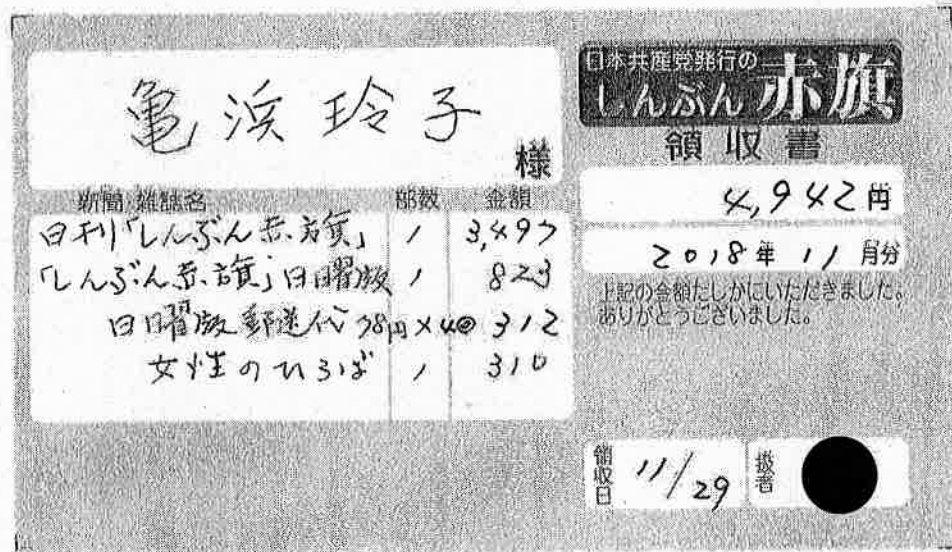 亀浜玲子
様
新聞・雑誌名 部数 金額
日刊「しんぶん赤旗」 1 3,497
「しんぶん赤旗」日曜版 1 823
日曜版郵送代 78円×4回 312
女性のひろば 1 310
日本共産党発行の
しんぶん赤旗
領収書
4,942円
2018年 11月分
上記の金額たしかにいただきました。
ありがとうございました。
領収日 11/29
扱者